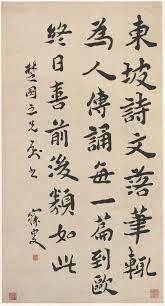 東坡詩文落筆輒
為人傳誦每一篇到歐
終日喜前後類如此
蝯叟